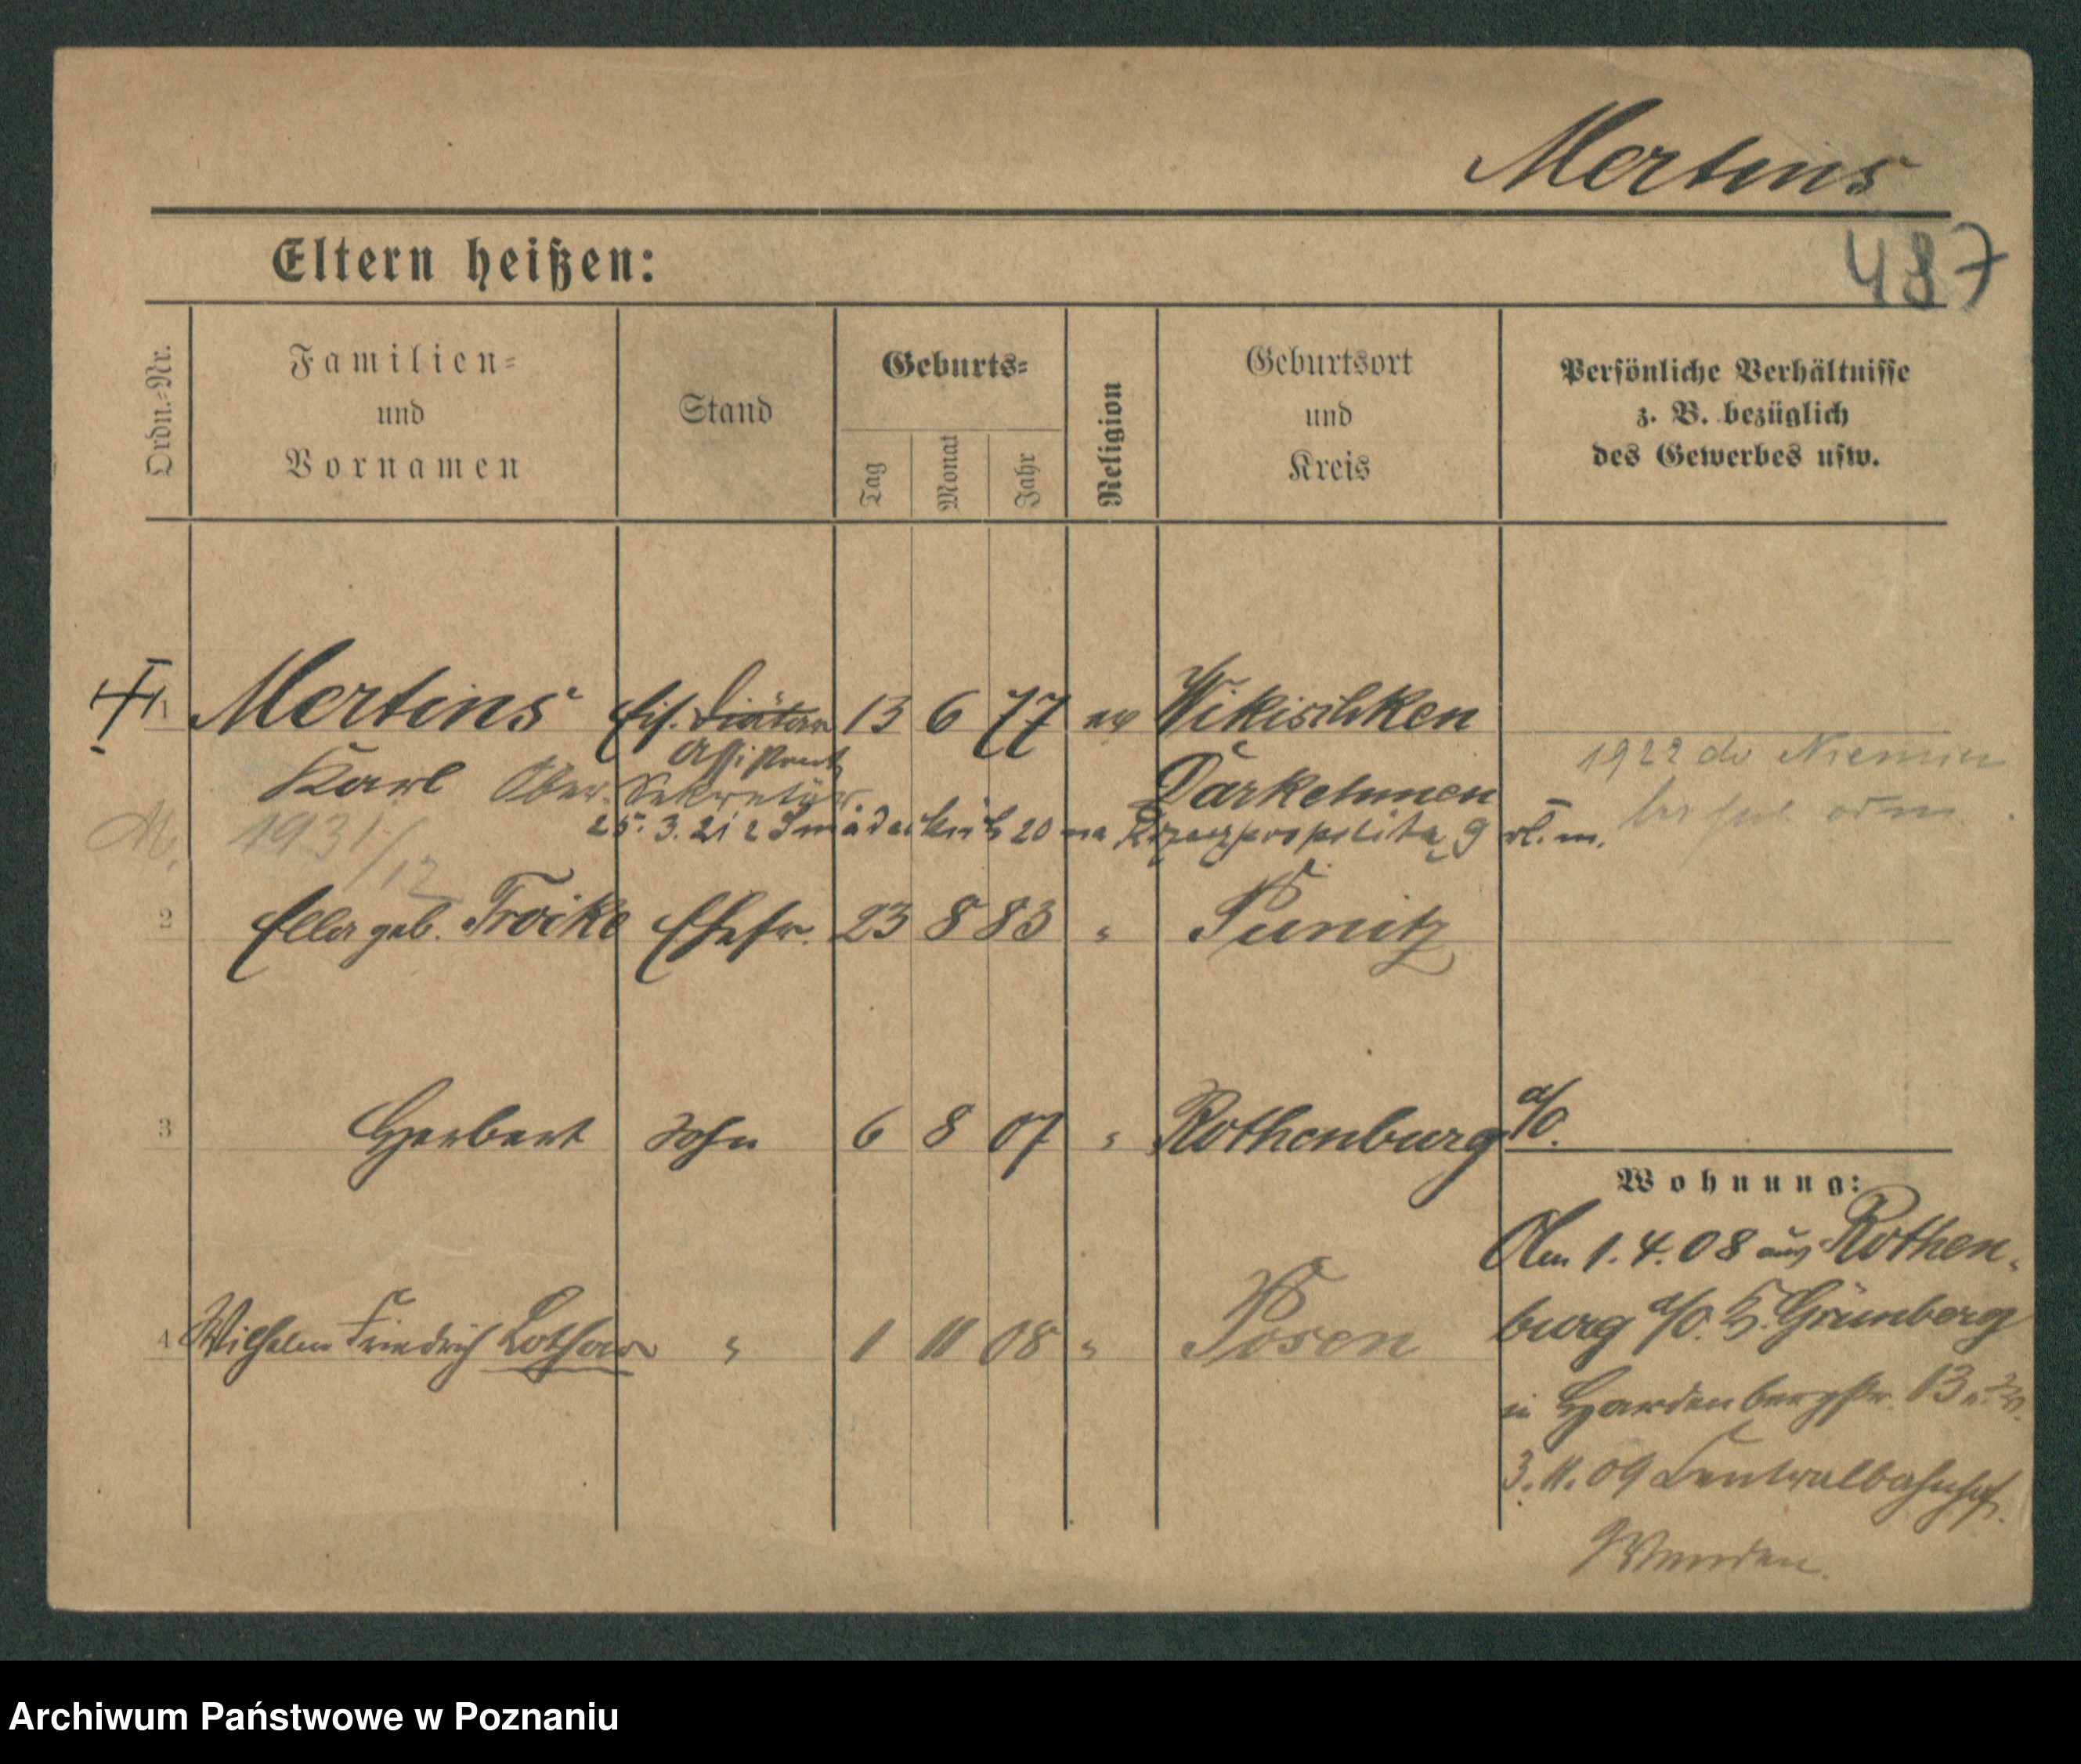 Mertins
487
Eltern heißen:
Ordn.-Nr.
Familien-
und
Vornamen
Stand
Geburts-
Tag
Monat
Jahr
Religion
Geburtsort
und
Kreis
Persönliche Verhältnisse
z. B. bezüglich
des Gewerbes usw.
1 Mertins Eis. Diätar 13 6 77 ev Wikischken
Assistent
Karl Ober-Sekretär Darkehmen
1922 do Niemiec
25.3.21 z Śniadeckich 20 na Rzeczpospolita 9 m.
M. 1931/12
2 Ella geb. Troike Ehefr. 23 8 83 " Punitz
3 Herbert Sohn 6 8 07 " Rothenburg a/O.
Wohnung:
4 Wilhelm Friedrich Lothar " 1 11 08 " Posen
Am 1.4.08 aus Rothen-
burg a/O. K. Grünberg
in Hardenbergstr. 13
3.11.09 Centralbahnhof
Archiwum Państwowe w Poznaniu